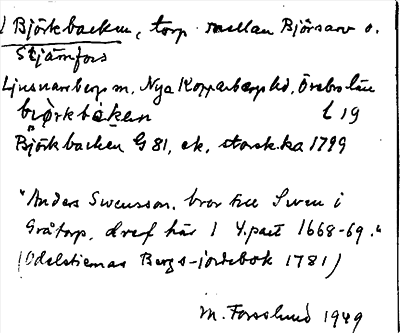 Björkbacken, torp mellan Björsarv o.
Stjärnfors
Ljusnarsbergs sn, Nya Kopparbergs hd, Örebro län
björkbäken L 19
Björkbacken G 81, ek, storsk.ka 1799
"Anders Swensson, bror till Swen i
Gråtorp, dref här 1 4.part 1668-69."
(Odelstiernas Bergs-jordebok 1781)
M. Forslund 1949